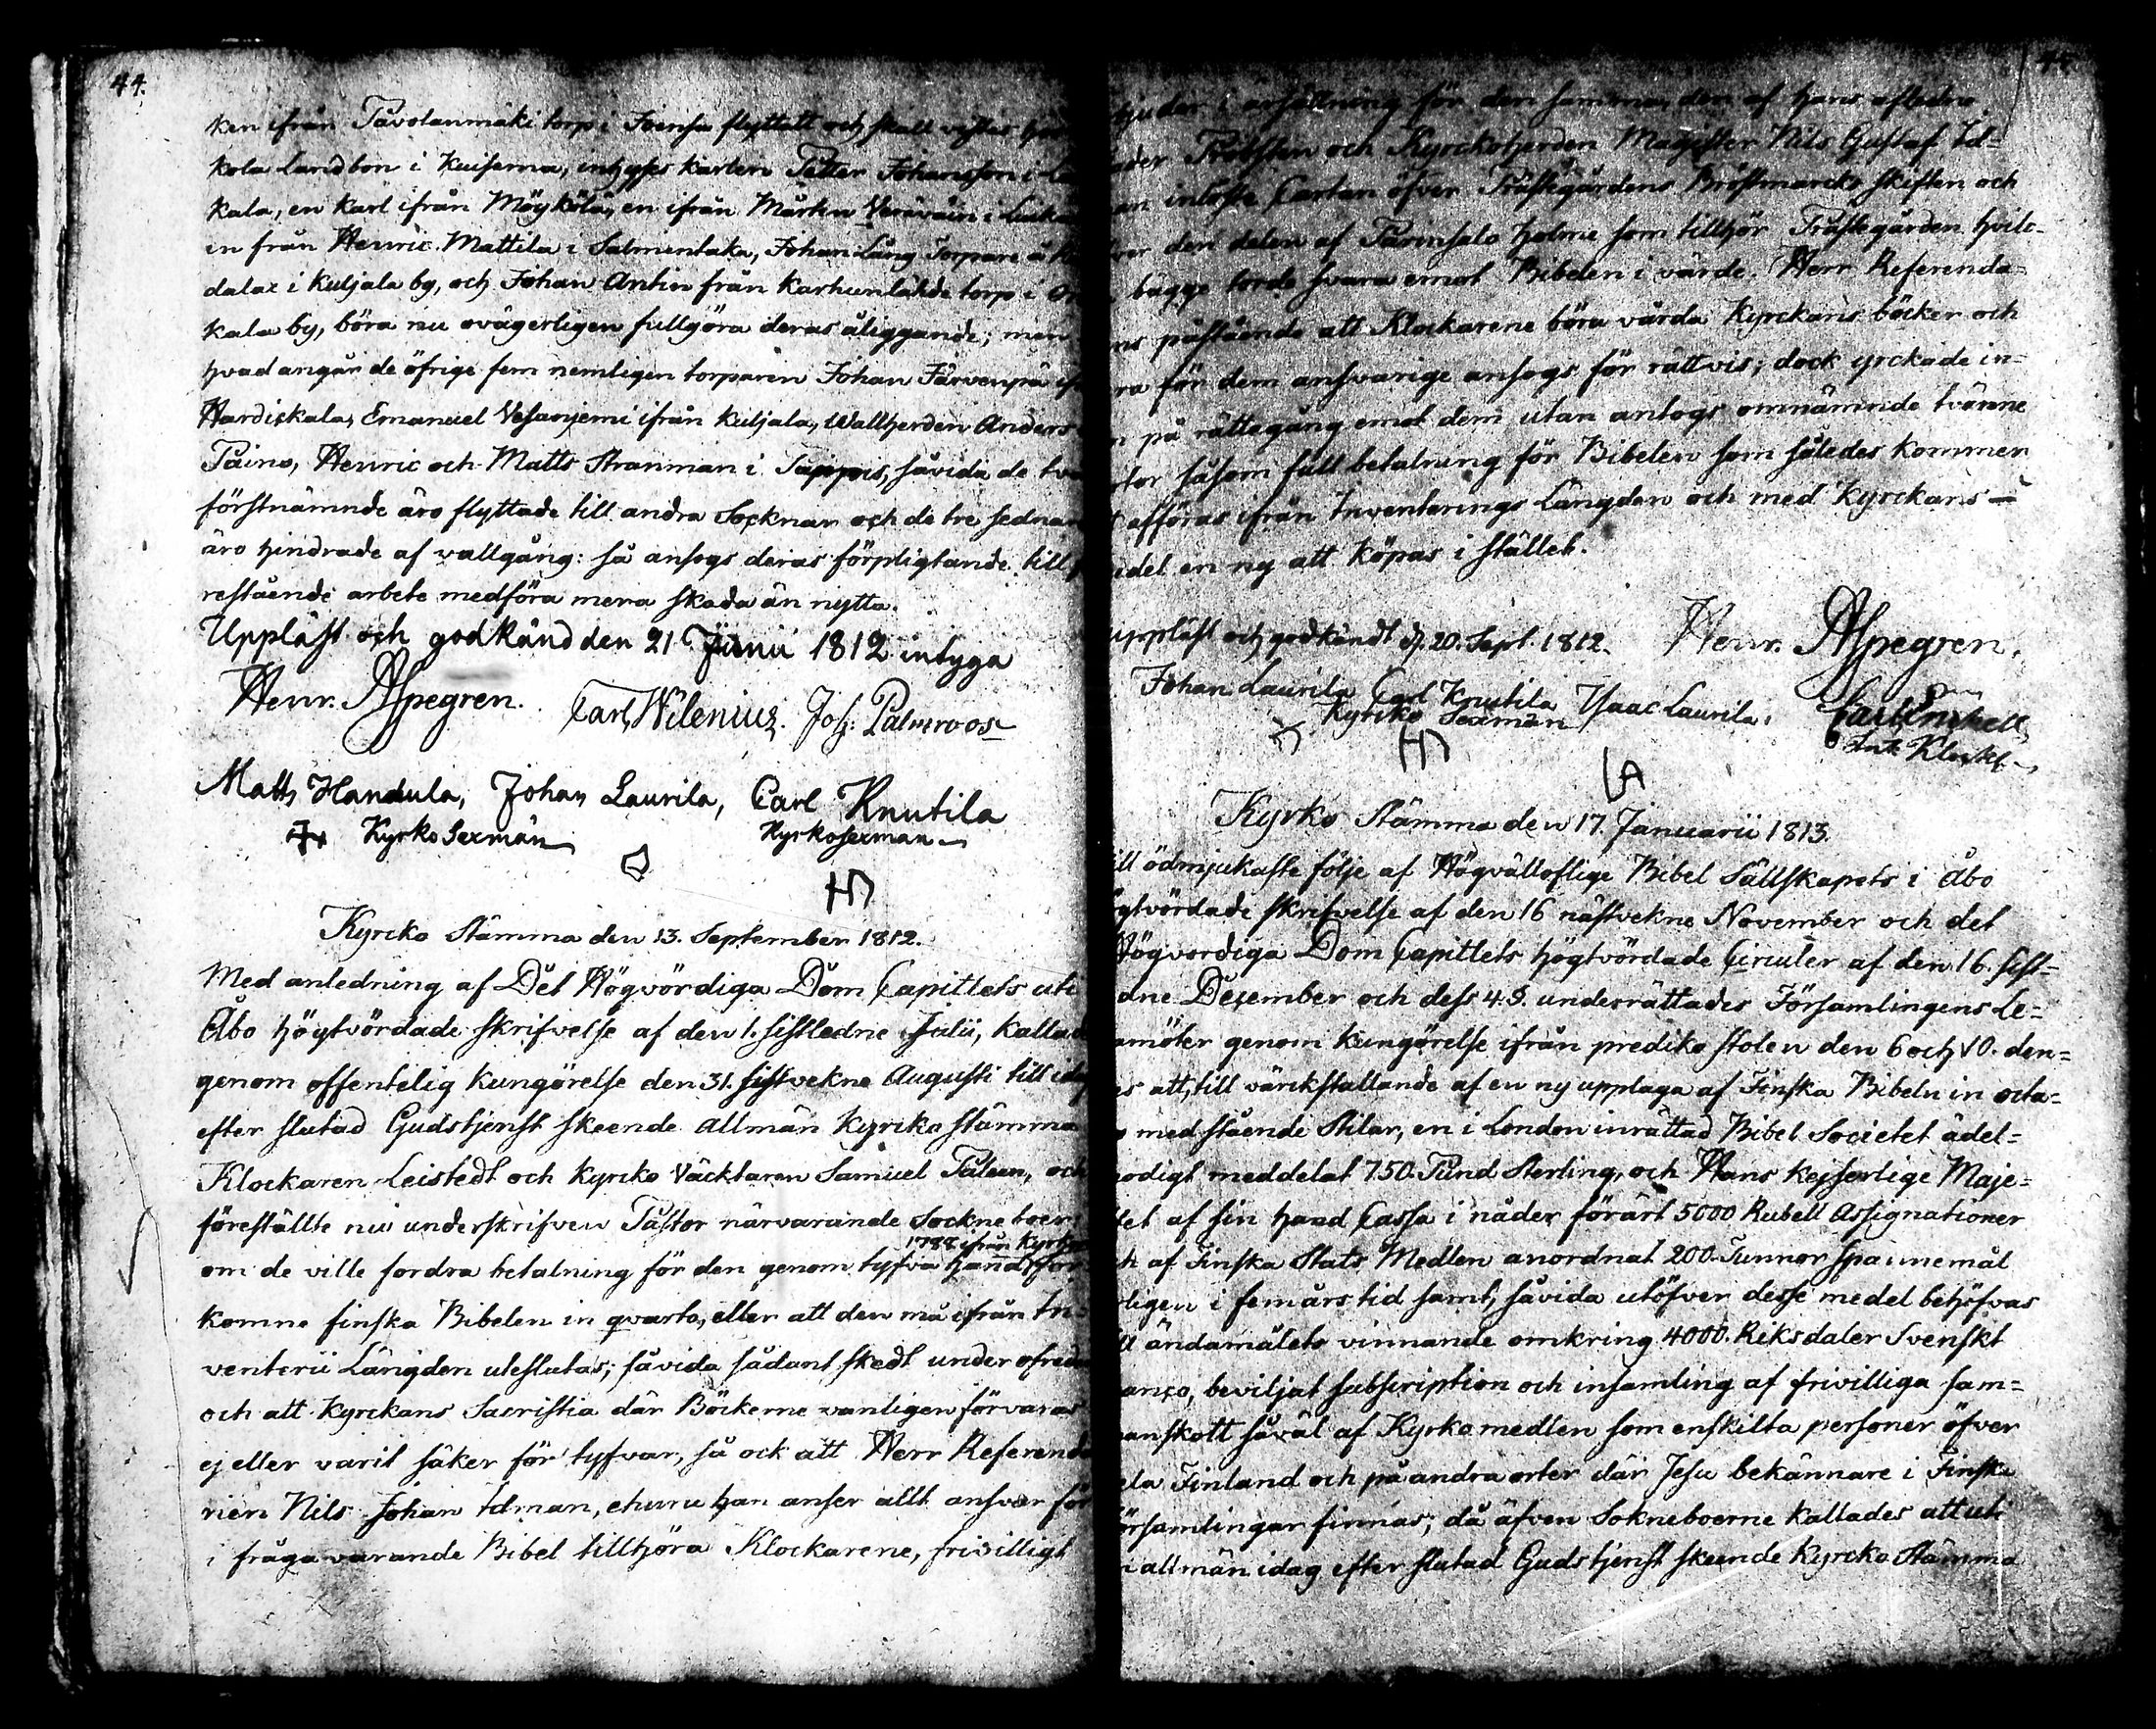 44.
ken ifrån Tavolanmäki torp i Toensu flyttatt och skall vistas hos
kola Landbon i Kuiserna, intygtes karlen Petter Johansson i
kala, en karl ifrån Möykölä, en ifrån Mårten Veräväin i
en från Henric Mattila i Salmentaka, Johan Lång Torpare å
dalax i Kuljala by, och Johan Antin från Karhunlähde torp i
kala by, böra nu ovägerligen fullgöra deras åliggande; men
hvad angår de öfrige fem nemligen torparen Johan Järvenpä
Hardiskala, Emanuel Vesanjemi ifrån Kuljala, Wallherden Anders
Paino, Henric och Matts Stranman i Tappois, såvida de
förstnämnde äro flyttade till andra Socknar och de tre sednare
äro hindrade af vallgång: så ansogs deras förpligtande till
restående arbete medföra mera skada än nytta.
Uppläst och godkänd den 21 Junii 1812 intyga
Henr. Aspegren. Carl Wilenius. Joh: Palmroos
Matts Handula, Johan Laurila, Carl Knutila
Kyrko Sexmän Kyrkosexman
Kyrcko Stämma den 13. September 1812.
Med anledning af Det Högvördiga Dom Capitlets uti
Åbo högtvördade skrifvelse af den 1. sistledne Julii, kallade
genom offentelig kungörelse den 31. sistvekne Augusti till idag
efter slutad Gudstjenst skeende allmän Kyrcko stämma
Klockaren Leistedt och Kyrcko Väcktaren Samuel Palen, och
föreställte nu underskrifven Pastor närvarande Sockneboer
1788 ifrån Kyrkan
om de ville fordra betalning för den genom tyfva hand för
komne finska Bibelen in qvarto, eller att den må ifrån In=
venterii Längden uteslutas; såvida sådant skedt under ofred
och att Kyrckans Sacristia där Böckerne vanligen förvaras
ej eller varit säker för tyfvar, så ock att Herr Referenda
rien Nils Johan Idman, ehuru han anser allt ansvar för
i fråga varande Bibel tillhöra Klockarene, frivilligt
bjuder i ersättning för den samma, den af hans afledne
ader Probsten och Kyrckoherden Magister Nils Gustaf Id=
an inlöste Cartan öfver Prästegårdens Bröstmarcks skiften och
ver den delen af Parinsalo holme som tillhör Prästegården hvilc=
bägge torde svara emot Bibelen i värde. Herr Referenda=
ns påstående att Klockarene böra vårda Kyrckans böcker och
ra för dem ansvarige ansogs för rättvis; dock yrckade in=
n på rättegång emot dem utan antogs omnämnde tvänne
rtor såsom full betalning för Bibelen som således kommer
afföras ifrån Inventerings Längden och med Kyrckans
edel en ny att köpas i stället.
uppläst och godkändt d. 20. Sept. 1812. Henr. Aspegren.
Johan Laurila Carl Knutila Isaac Laurila.
Kyrcko Sexmän
Kyrko Stämma den 17. Januarii 1813.
ill ödmjukaste följe af Högvälloflige Bibel Sällskapets i Åbo
gtvördade skrifvelse af den 16 nästvekne November och det
Högvordiga Dom Capitlets högtvördade Circuler af den 16. sist=
dne December och dess 4. §. underrättades Församlingens Le=
amöter genom kungörelse ifrån prediko stolen den 6 och 10. den=
es att, till värckställande af en ny upplaga af Finska Bibeln in octa=
med stående Stilar, en i London inrättad Bibel Societet ädel=
modigt meddelat 750. Pund Sterling, och Hans Kejserlige Maje=
tet af sin hand Cassa i nåder förärt 5000 Rubell Assignationer
ch af Finska Stats Medlen anordnat 200. Tunnor Spannemål
rligen i femårs tid samt, såvida utöfver desse medel behöfvas
ll ändamålets vinnande omkring 4000. Riksdaler Svenskt
anco, beviljat subscription och insamling af frivilliga sam=
manskott såväl af Kyrko medlen som enskilta personer öfver
ela Finland och på andra orter där Jesu bekännare i Finska
örsamlingar finnas; då äfven Sokneboerne kallades att uti
n allmän idag efter slutad Gudstjenst skeende Kyrcko Stämma